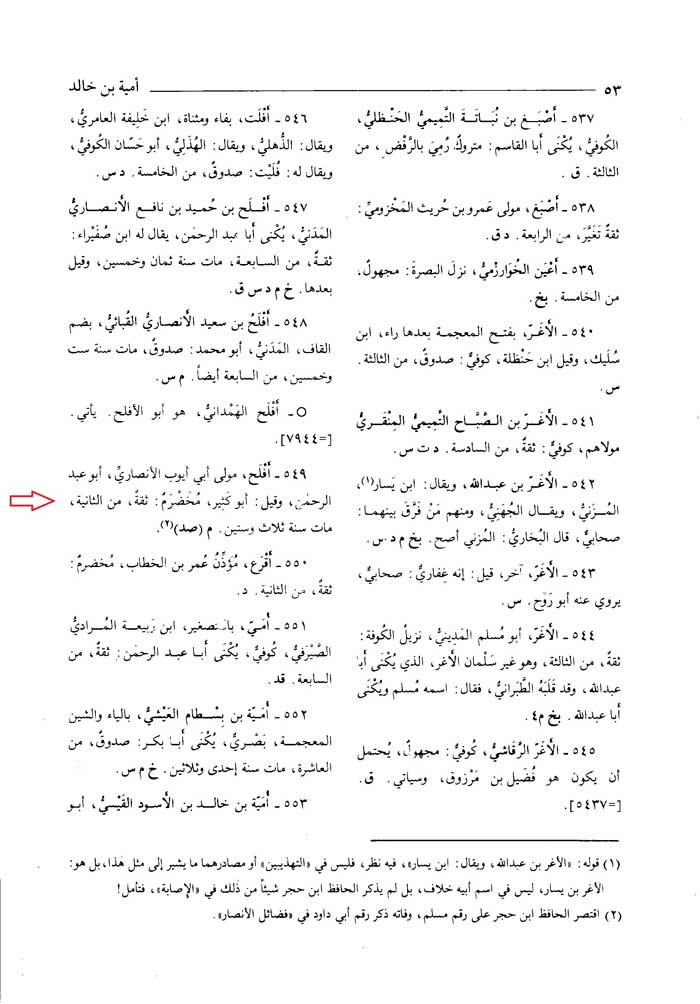 ٥٣
أمية بن خالد
٥٣٧ ـ أَصْبَغ بن نُبَاتَة التَّميميُّ الحَنْظليُّ،
الكُوفيُّ، يُكْنَى أبا القاسم: متروكٌ رُمِيَ بالرَّفْضِ، من
الثالثة. ق.
٥٣٨ ـ أَصْبَغ، مولى عَمرو بن حُريث المَخْزوميِّ:
ثقةٌ تَغَيَّرَ، من الرابعة. د ق.
٥٣٩ ـ أَعْيَن الخُوَارزميُّ، نزلَ البصرةَ: مجهولٌ،
من الخامسة. بخ.
٥٤٠ ـ الأَغَرّ، بفتـح المعجمة بعدها راء، ابن
سُلَيك، وقيل ابن حَنْظلة، كوفيٌّ: صدوقٌ، من الثالثة.
س.
٥٤١ ـ الأَغَرّ بن الصَّبَّاح التَّميميُّ المِنْقَريُّ
مولاهم، كوفيٌّ: ثقةٌ، من السادسة. د ت س.
٥٤٢ ـ الأَغَرّ بن عبدالله، ويقال: ابن يَسار(١)،
المُزَنيُّ، ويقـال الجُهَنِيُّ، ومنهم مَنْ فَرَّقَ بينهمـا:
صحابيٌّ، قال البُخاريُّ: المُزني أصح. بخ م د س.
٥٤٣ ـ الأَغَرّ، آخر، قيل: إنه غِفاريٌّ: صحابيٌّ،
يروي عنه أبو رَوْح. س.
٥٤٤ ـ الأَغَرّ، أبو مُسلم المَدِينيُّ، نزيلُ الكُوفة:
ثقةٌ، من الثالثة، وهو غير سَلْمان الأغر، الذي يُكْنَى أبا
عبدالله، وقد قَلَبَهُ الطَّبَرانيُّ، فقال: اسمه مُسلم ويُكْنَى
أبا عبدالله. بخ م٤.
٥٤٥ ـ الأَغَرّ الرَّقَاشيُّ، كُوفيٌّ: مجهولٌ، يُحتمل
أن يكون هو فُضَيل بن مَرْزوق، وسياتي. ق.
[=٥٤٣٧].
٥٤٦ ـ أَفْلَت، بفاء ومثناة، ابن خَلِيفة العامريُّ،
ويقال: الذُّهليُّ، ويقال: الهُذَلِيُّ، أبو حَسَّان الكُوفيُّ،
ويقال له: فُلَيْت: صدوقٌ، من الخامسة. د س.
٥٤٧ ـ أَفْـلَح بن حُميـد بن نافـع الأَنـصـاريُّ
المَدَنيُّ، يُكْنَى أبا عبد الرحمٰن، يقال له ابن صُفَيْراء:
ثقـةٌ، من السـابعـة، مات سنة ثمان وخمسين، وقيل
بعدها. خ م د س ق.
٥٤٨ ـ أَفْلَحُ بن سعيد الأَنصاريُّ القُبائيُّ، بضم
القاف، المَدَنيُّ، أبو محمد: صدوقٌ، مات سنة ست
وخمسين، من السابعة أيضاً. م س.
○ ـ أَفْلَح الهَمْدانيُّ، هو أبو الأفلح. يأتي.
[=٧٩٤٤].
٥٤٩ ـ أَفْلَح، مولى أبي أيوب الأنصاريِّ، أبو عبد
الرحمٰن، وقيل: أبو كَثِير، مُخَضْرَمٌ: ثقةٌ، من الثانية،
مات سنة ثلاث وستين. م (صد)(٢).
٥٥٠ ـ أَقْرَع، مُؤَذِّنُ عُمر بن الخطاب، مُخضرمٌ:
ثقةٌ، من الثانية. د.
٥٥١ ـ أُمَيّ، بالتصغير، ابن رَبيعـة المُـراديُّ
الصَّيْرَفيُّ، كُوفيٌّ، يُكْنَى أبـا عبـد الرحمٰن: ثقةٌ، من
السابعة. قد.
٥٥٢ ـ أُمَيَّة بن بِسْـطام العَيْشيُّ، بالياء والشين
المعجمـة، بَصْـريٌّ، يُكْنَى أبـا بكـر: صدوقٌ، من
العاشرة، مات سنة إحدى وثلاثين. خ م س.
٥٥٣ ـ أُمَيَّة بن خالـد بن الأسود القَيْسيُّ، أبـو
(١) قوله: «الأغر بن عبدالله، ويقال: ابن يسار»، فيه نظر، فليس في «التهذيبين» أو مصادرهما ما يشير إلى مثل هٰذا، بل هو:
الأغر بن يسار، ليس في اسم أبيه خلاف، بل لم يذكر الحافظ ابن حجر شيئاً من ذلك في «الإصابة»، فتأمل!
(٢) اقتصر الحافظ ابن حجر على رقم مسلم، وفاته ذكر رقم أبي داود في «فضائل الأنصار».